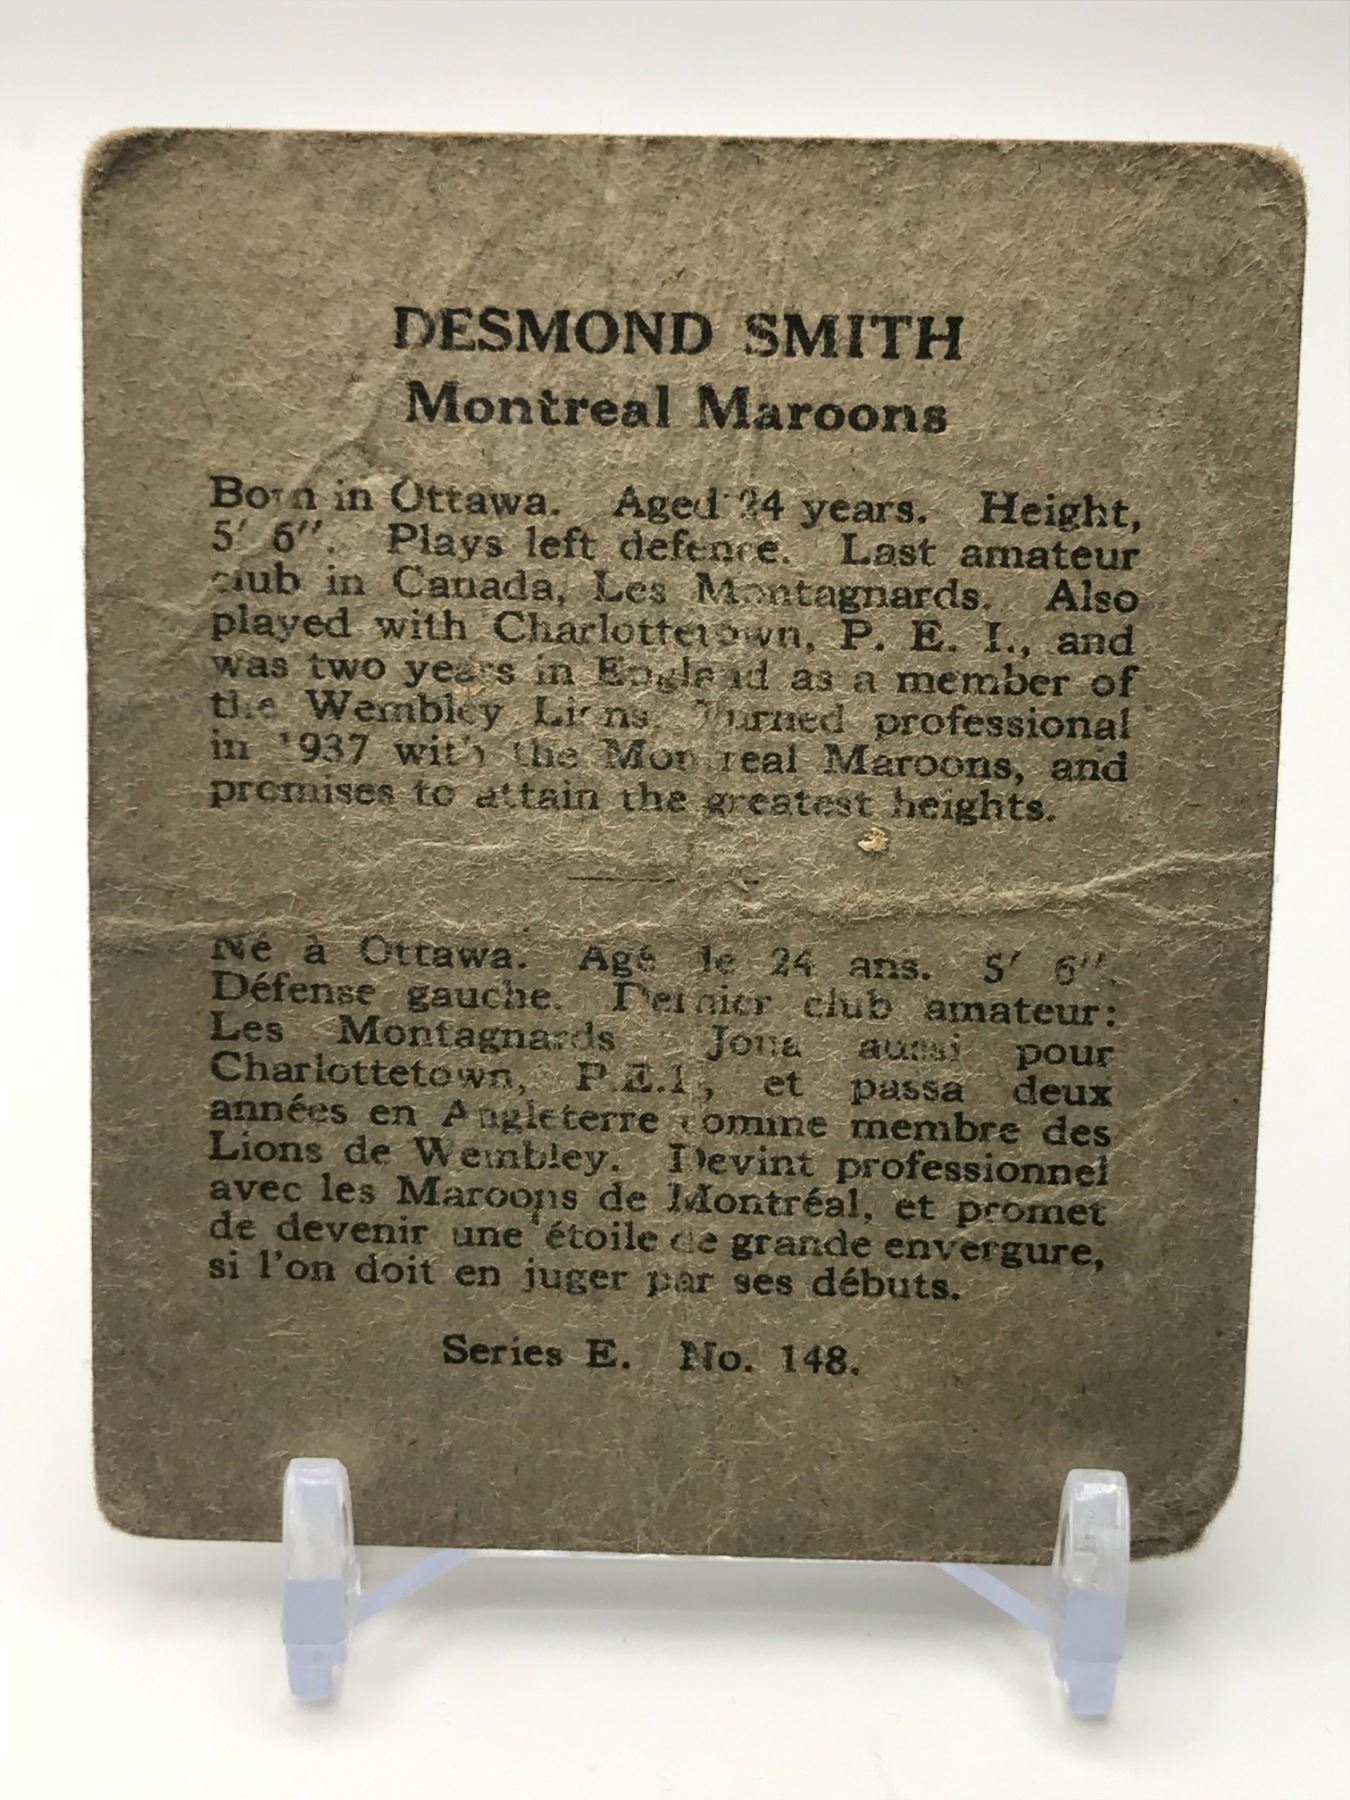 DESMOND SMITH
Montreal Maroons
Born in Ottawa. Aged 24 years. Height,
5' 6". Plays left defence. Last amateur
club in Canada, Les Montagnards. Also
played with Charlottetown, P. E. I., and
was two years in England as a member of
the Wembley Lions. Turned professional
in 1937 with the Montreal Maroons, and
promises to attain the greatest heights.
Né à Ottawa. Agé de 24 ans. 5' 6".
Défense gauche. Dernier club amateur:
Les Montagnards Joua aussi pour
Charlottetown, P.E.I., et passa deux
années en Angleterre comme membre des
Lions de Wembley. Devint professionnel
avec les Maroons de Montréal, et promet
de devenir une étoile de grande envergure,
si l'on doit en juger par ses débuts.
Series E. No. 148.